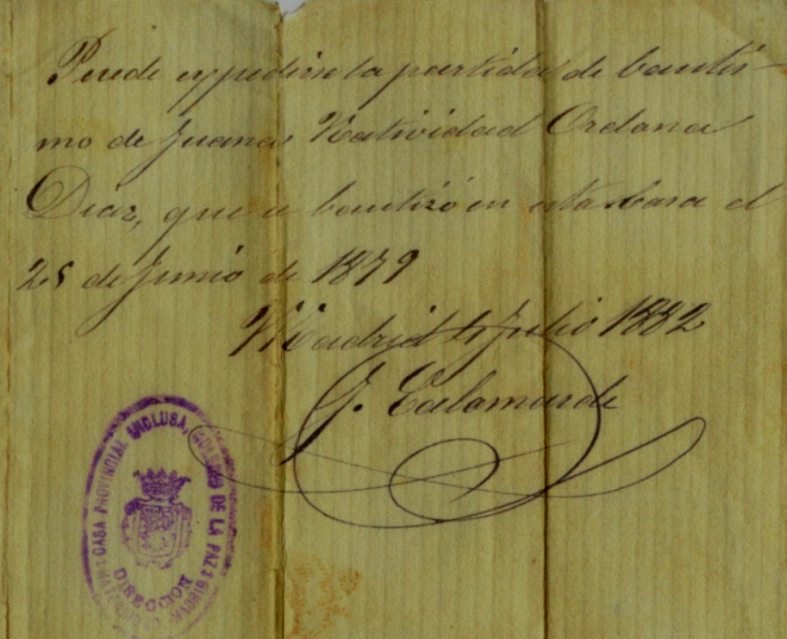 Puede expedirse la partida de bautis-
mo de Juana Natividad Orelana
Diaz, que se bautizó en esta Casa el
25 de Junio de 1879
Madrid 4 Julio 1882
J. Calomarde
CASA PROVINCIAL INCLUSA, COLEGIO DE LA PAZ
MADRID
DIRECCION